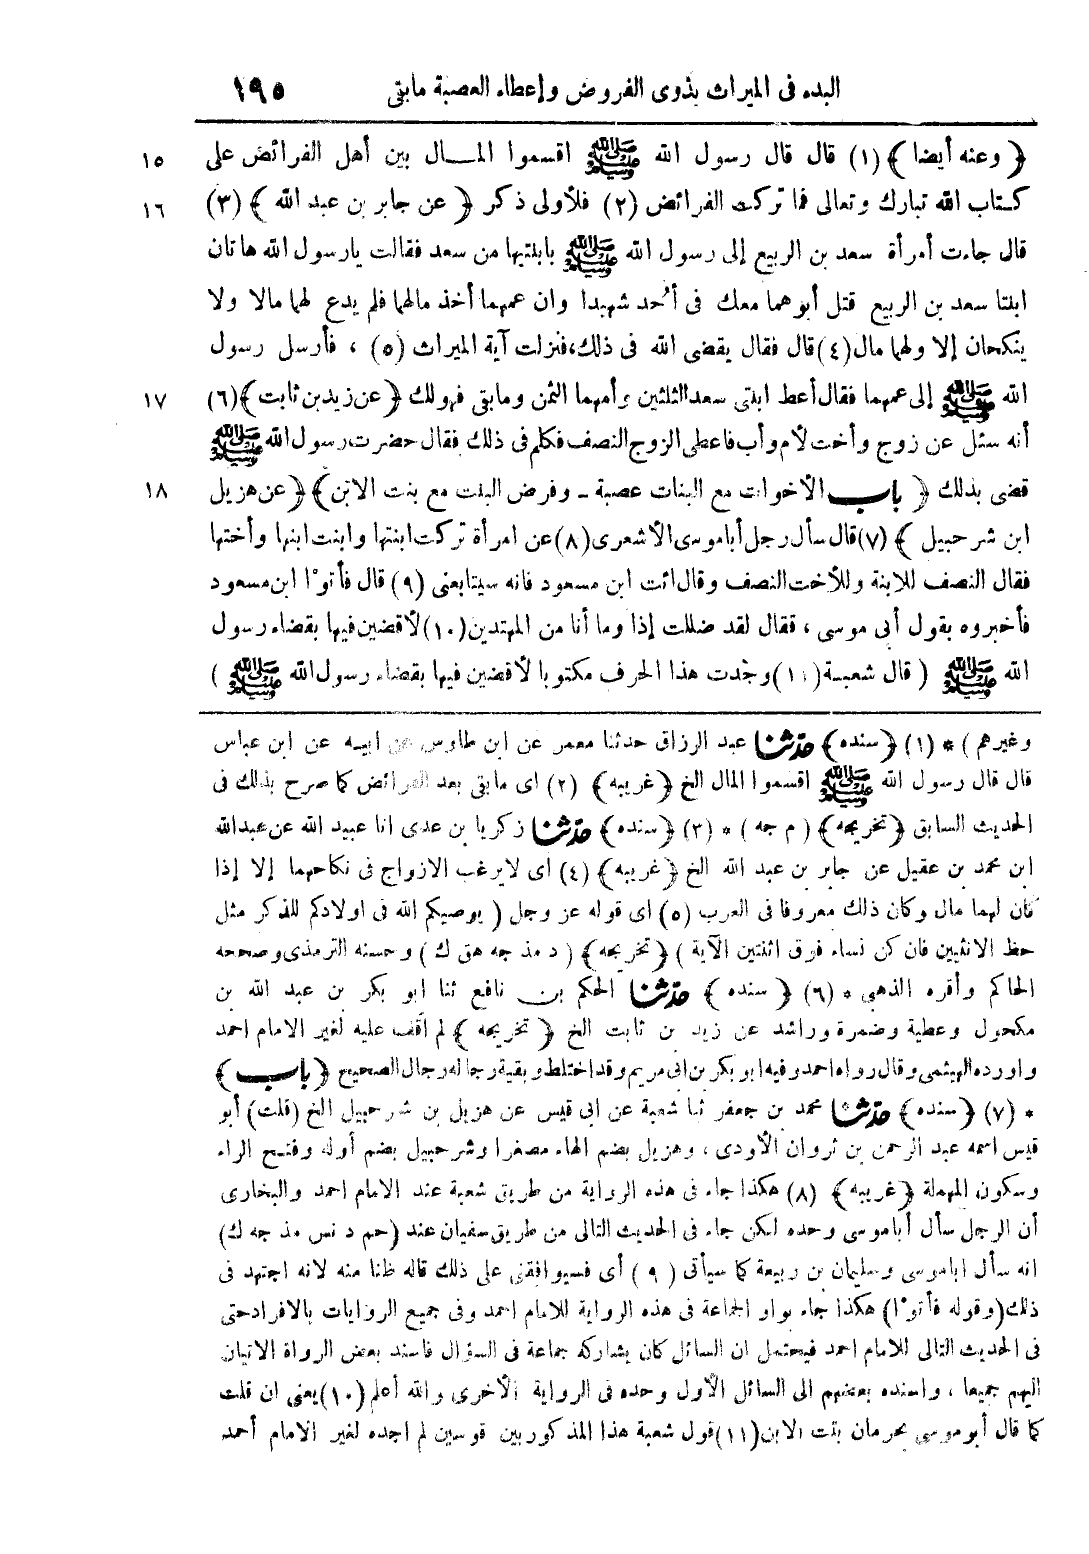 البدء فى الميراث بذوى الفروض وإعطاء العصبة مابقى ١٩٥
١٥ ﴿ وعنه أيضا ﴾ (١) قال قال رسول الله ﷺ اقسموا المال بين أهل الفرائض على
١٦ كتاب الله تبارك وتعالى فما تركت الفرائض (٢) فلأولى ذكر ﴿ عن جابر بن عبد الله ﴾ (٣)
قال جاءت أمرأة سعد بن الربيع إلى رسول الله ﷺ بابنتيها من سعد فقالت يارسول الله هاتان
ابنتا سعد بن الربيع قتل أبوهما معك فى أُحد شهيدا وان عمهما أخذ مالهما فلم يدع لهما مالا ولا
ينكحان إلا ولهما مال (٤) قال فقال يقضى الله فى ذلك، فنزلت آية الميراث (٥) ، فأرسل رسول
١٧ الله ﷺ إلى عمهما فقال أعط ابنتى سعد الثلثين وأمهما الثمن ومابقى فهولك ﴿ عن زيد بن ثابت ﴾ (٦)
أنه سئل عن زوج وأخت لأم وأب فاعطى الزوج النصف فكلم فى ذلك فقال حضرت رسول الله ﷺ
١٨ قضى بذلك ﴿ باب الأخوات مع البنات عصبة ـ وفرض البنت مع بنت الابن ﴾ ﴿ عن هزيل
ابن شرحبيل ﴾ (٧) قال سأل رجل أبا موسى الأشعرى (٨) عن امرأة تركت ابنتها وابنت ابنها وأختها
فقال النصف للابنة وللأخت النصف وقال ائت ابن مسعود فانه سيتابعنى (٩) قال فأتوْا ابن مسعود
فأخبروه بقول أبى موسى ، فقال لقد ضللت إذا وما أنا من المهتدين (١٠) لأقضين فيها بقضاء رسول
الله ﷺ ( قال شعبة (١١) وجدت هذا الحرف مكتوبا لأقضين فيها بقضاء رسول الله ﷺ )
وغيرهم ) * (١) ﴿ سنده ﴾ حدثنا عبد الرزاق حدثنا معمر عن ابن طاوس عن ابيه عن ابن عباس
قال قال رسول الله ﷺ اقسموا المال الخ ﴿ غريبه ﴾ (٢) اى مابقى بعد الفرائض كما صرح بذلك فى
الحديث السابق ﴿ تخريجه ﴾ ( م جه ) * (٣) ﴿ سنده ﴾ حدثنا زكريا بن عدى انا عبيد الله عن عبد الله
ابن محمد بن عقيل عن جابر بن عبد الله الخ ﴿ غريبه ﴾ (٤) اى لا يرغب الازواج فى نكاحهما إلا إذا
كان لهما مال وكان ذلك معروفا فى العرب (٥) اى قوله عز وجل ( يوصيكم الله فى اولادكم للذكر مثل
حظ الانثيين فان كن نساء فوق اثنتين الآية ) ﴿ تخريجه ﴾ ( د مذ جه هق ك ) وحسنه الترمذى وصححه
الحاكم وأقره الذهبى * (٦) ﴿ سنده ﴾ حدثنا الحكم بن نافع ثنا ابو بكر بن عبد الله بن
مكحول وعطية وضمرة وراشد عن زيد بن ثابت الخ ﴿ تخريجه ﴾ لم أقف عليه لغير الامام احمد
واورده الهيثمى وقال رواه احمد وفيه ابو بكر بن ابى مريم وقد اختلط وبقية رجاله رجال الصحيح ﴿ باب ﴾
* (٧) ﴿ سنده ﴾ حدثنا محمد بن جعفر ثنا شعبة عن ابى قيس عن هزيل بن شرحبيل الخ (قلت) أبو
قيس اسمه عبد الرحمن بن ثروان الأودى ، وهزيل بضم الهاء مصغرا وشرحبيل بضم أوله وفتح الراء
وسكون المهملة ﴿ غريبه ﴾ (٨) هكذا جاء فى هذه الرواية من طريق شعبة عند الامام احمد والبخارى
أن الرجل سأل أبا موسى وحده لكن جاء فى الحديث التالى من طريق سفيان عند (حم د نس مذ جه ك)
انه سأل ابا موسى وسليمان بن ربيعة كما سيأتى (٩) أى فسيوافقنى على ذلك قاله ظنا منه لانه اجتهد فى
ذلك (وقوله فأتوْا) هكذا جاء بواو الجماعة فى هذه الرواية للامام احمد وفى جميع الروايات بالافراد حتى
فى الحديث التالى للامام احمد فيحتمل ان السائل كان يشاركه جماعة فى السؤال فاسند بعض الرواة الاتيان
اليهم جميعا ، واسنده بعضهم الى السائل الأول وحده فى الرواية الأخرى والله أعلم (١٠) يعنى ان قلت
كما قال أبو موسى بحرمان بنت الابن (١١) قول شعبة هذا المذكور بين قوسين لم اجده لغير الامام أحمد